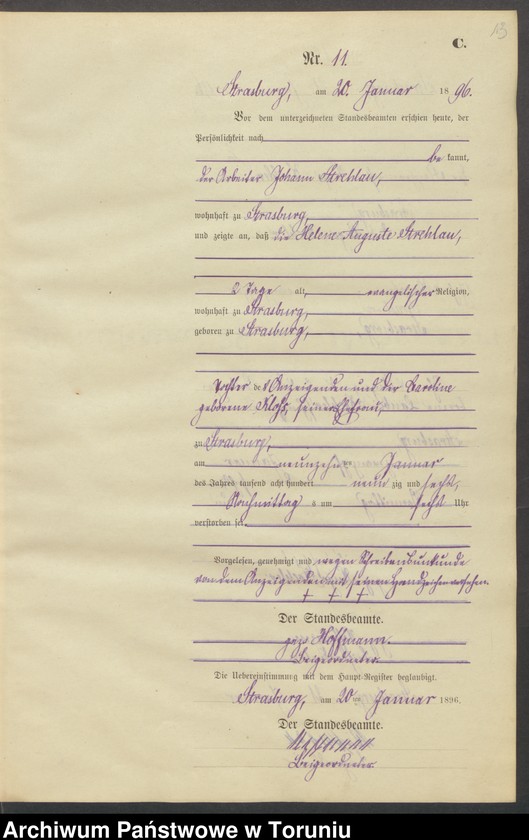 13
C.
Nr. 11.
Strasburg, am 20. Januar 1896.
Vor dem unterzeichneten Standesbeamten erschien heute, der
Persönlichkeit nach
be kannt,
der Arbeiter Johann Strehlau,
wohnhaft zu Strasburg,
und zeigte an, daß die Helene Auguste Strehlau,
2 Tage alt, evangelischer Religion,
wohnhaft zu Strasburg,
geboren zu Strasburg,
Tochter des Anzeigenden und der Caroline
geborene seiner Ehefrau,
zu Strasburg,
am neunzehn ten Januar
des Jahres tausend acht hundert neun zig und sechs,
Nachmittag s um sechs Uhr
verstorben sei.
Vorgelesen, genehmigt und wegen Schreibensunkunde
von dem Anzeigenden mit seinem Handzeichen versehen.
+ + +
Der Standesbeamte.
gez. Hoffmann.
Beigeordneter.
Die Uebereinstimmung mit dem Haupt-Register beglaubigt.
Strasburg, am 20ten Januar 1896.
Der Standesbeamte.
Beigeordneter.
Archiwum Państwowe w Toruniu